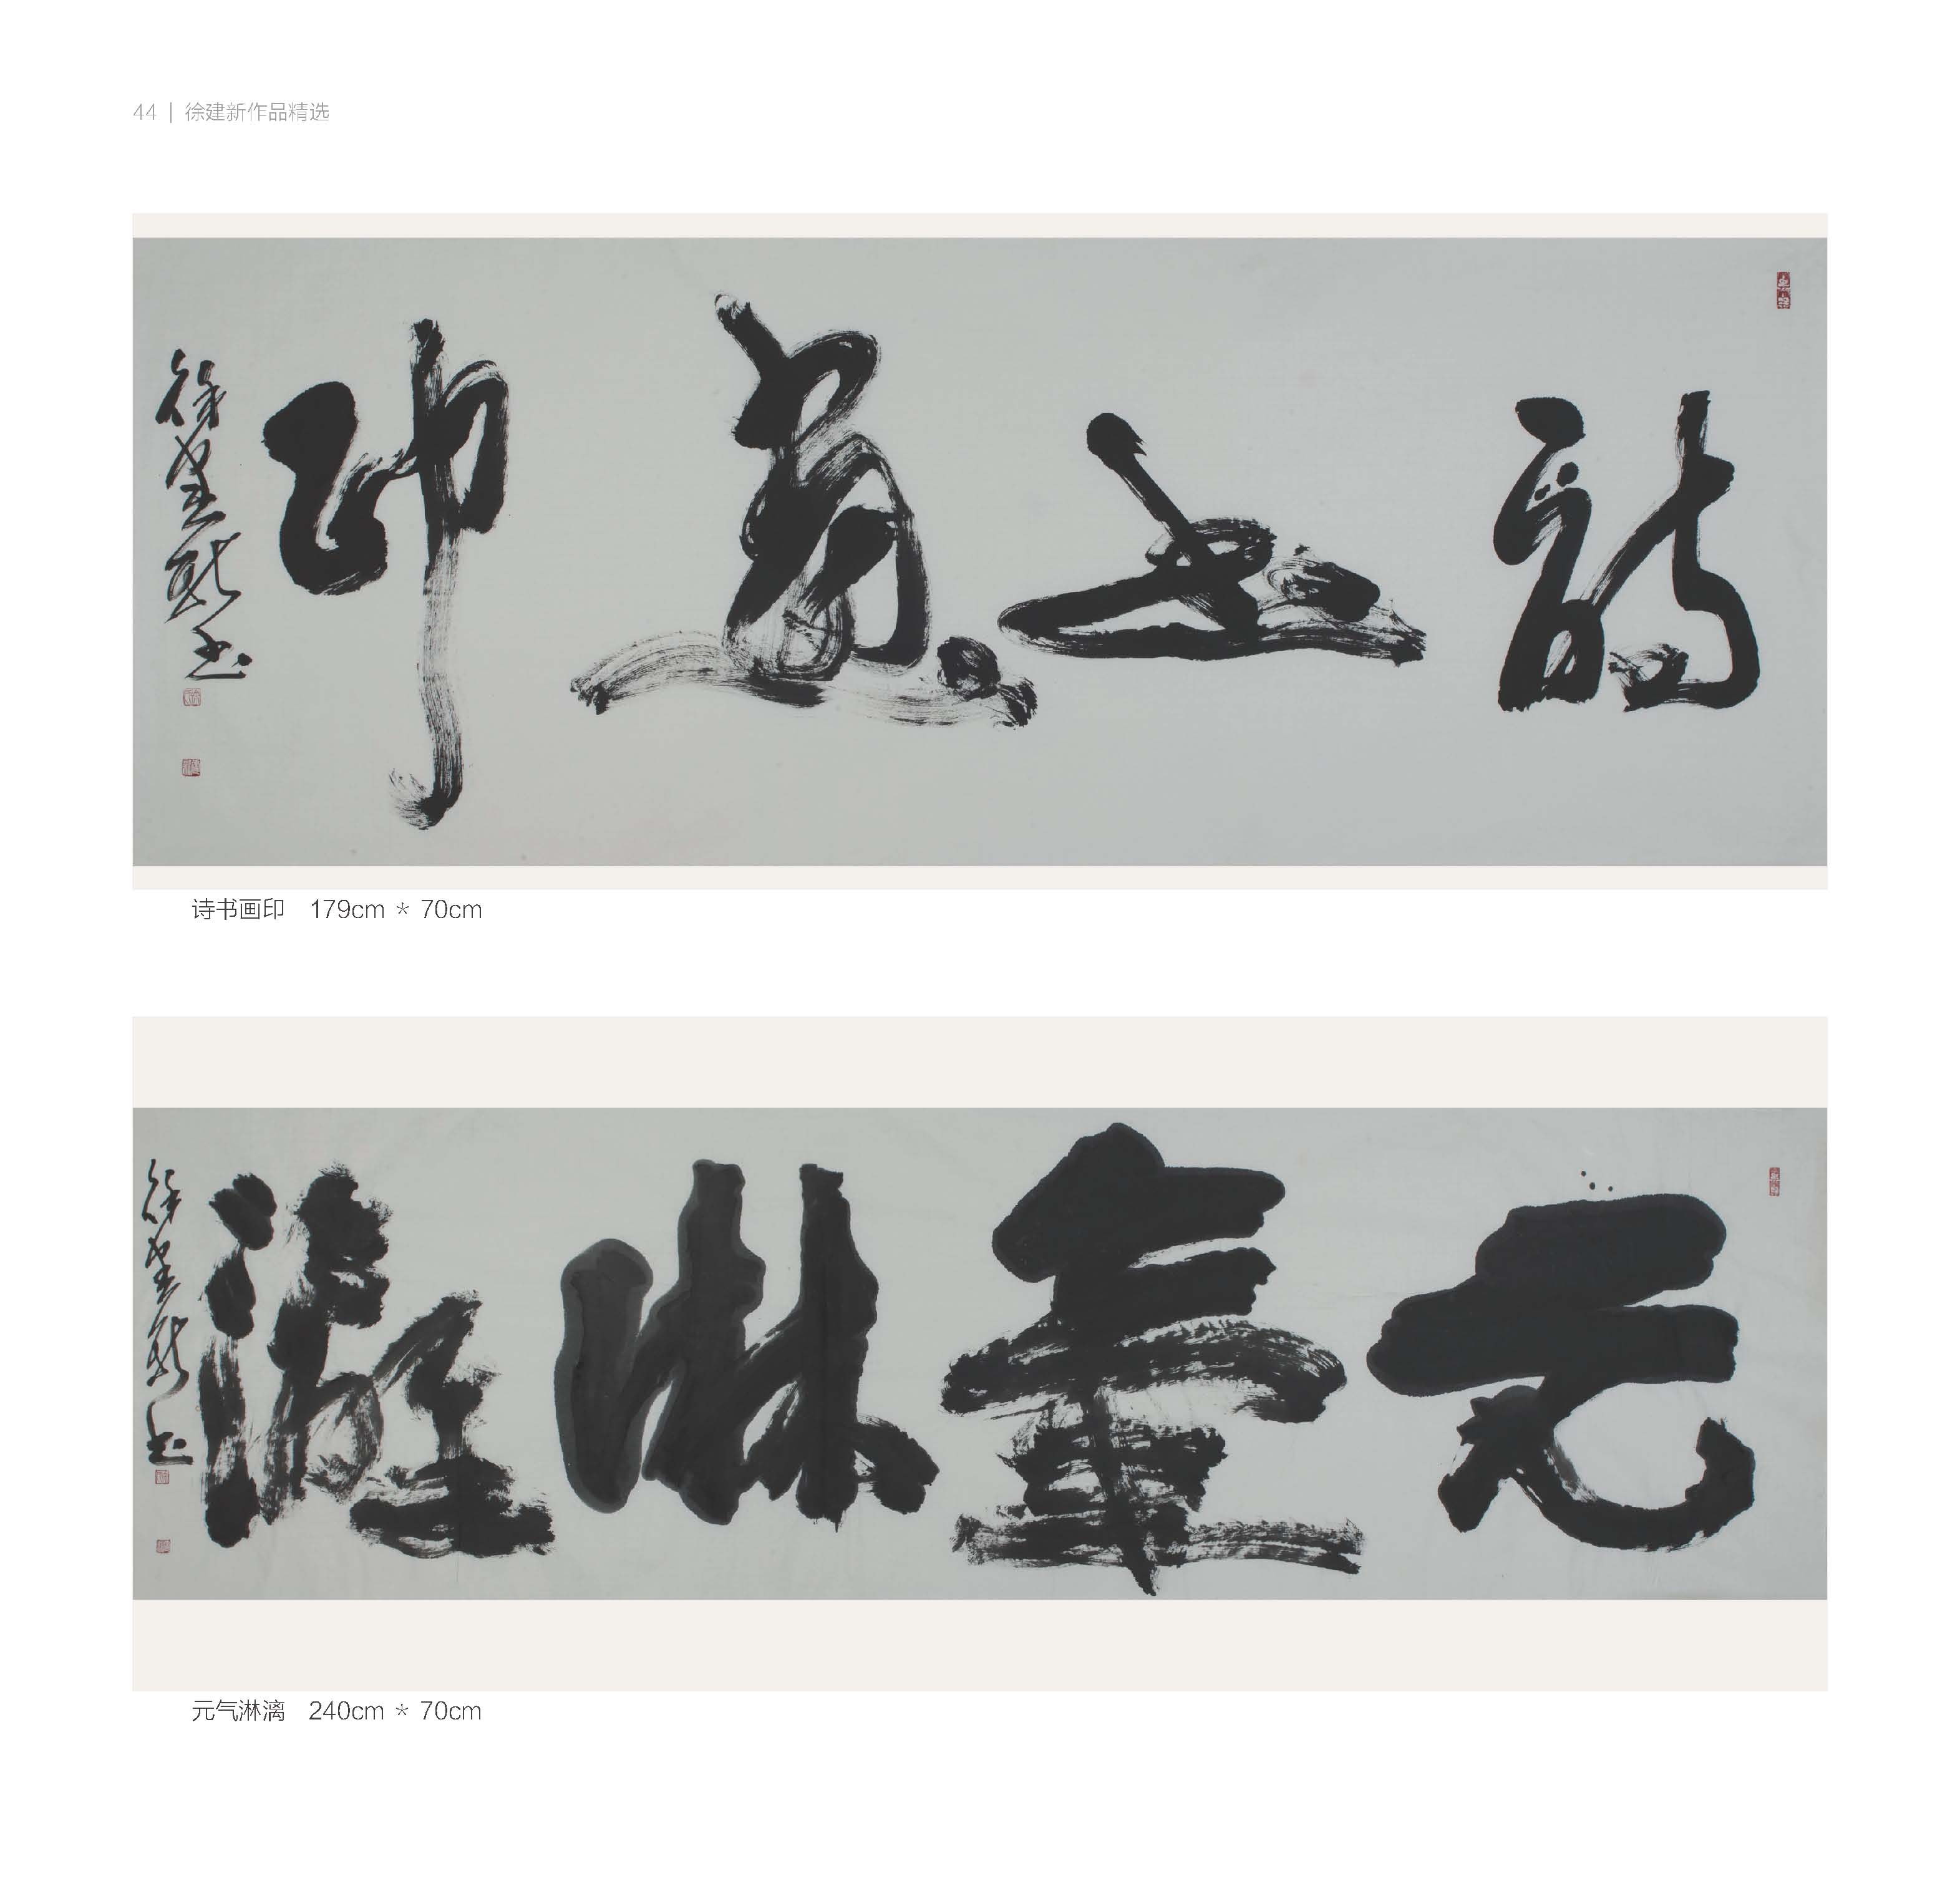 44 | 徐建新作品精选
詩書畫印
徐建新书
诗书画印 179cm * 70cm
元氣淋漓
徐建新书
元气淋漓 240cm * 70cm